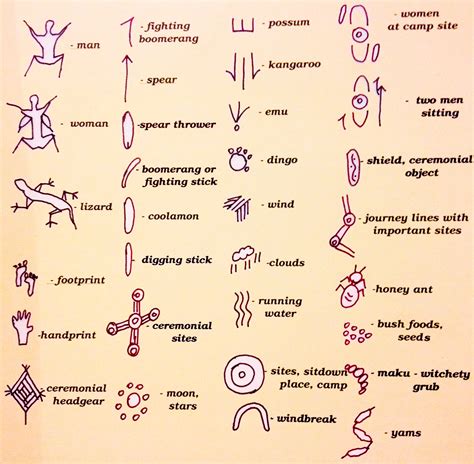 - man
- woman
- lizard
- footprint
- handprint
- ceremonial
headgear
- fighting
boomerang
- spear
- spear thrower
- boomerang or
fighting stick
- coolamon
- digging stick
- ceremonial
sites
- moon,
stars
- possum
- kangaroo
- emu
- dingo
- wind
- clouds
- running
water
- sites, sitdown
place, camp
- windbreak
- women
at camp site
- two men
sitting
- shield, ceremonial
object
- journey lines with
important sites
- honey ant
- bush foods,
seeds
- maku - witchety
grub
- yams